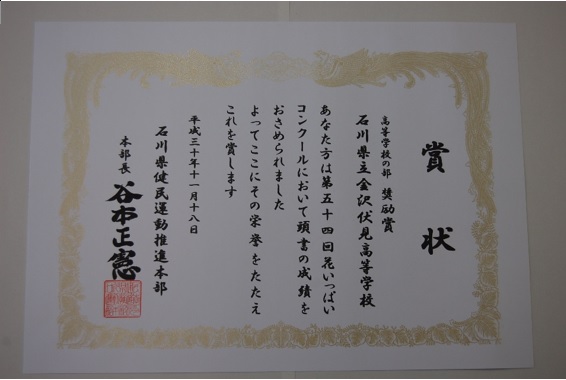 賞状
高等学校の部 奨励賞
石川県立金沢伏見高等学校
あなた方は第五十四回花いっぱい
コンクールにおいて頭書の成績を
おさめられました
よってここにその栄誉をたたえ
これを賞します
平成三十年十一月十八日
石川県健民運動推進本部
本部長 谷本正憲